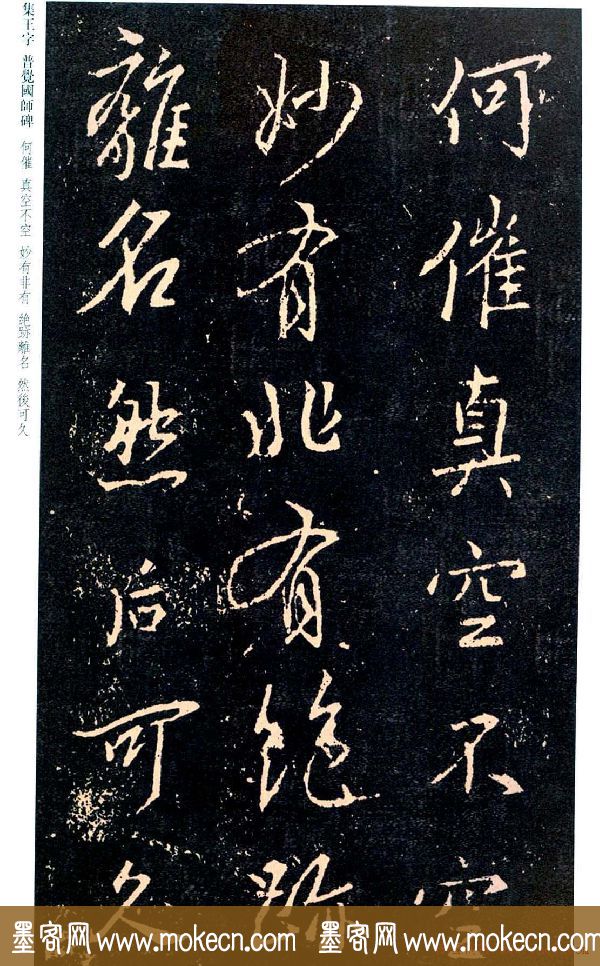 何催真空不空
妙有非有絶跡
離名然后可久
集王字 普覺國師碑 何催 真空不空 妙有非有 絶跡離名 然後可久
墨客网 www.mokecn.com 墨客网 www.mokecn.com 墨客网 www.mokecn.com